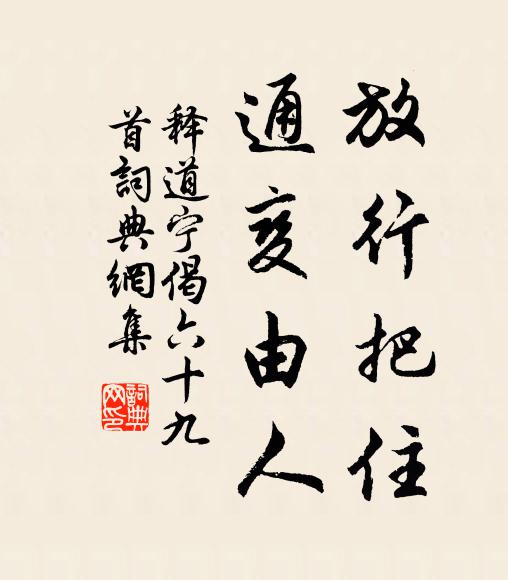 放行把住
通变由人
释道宁偈六十九
首詞典網集
詞典
网印